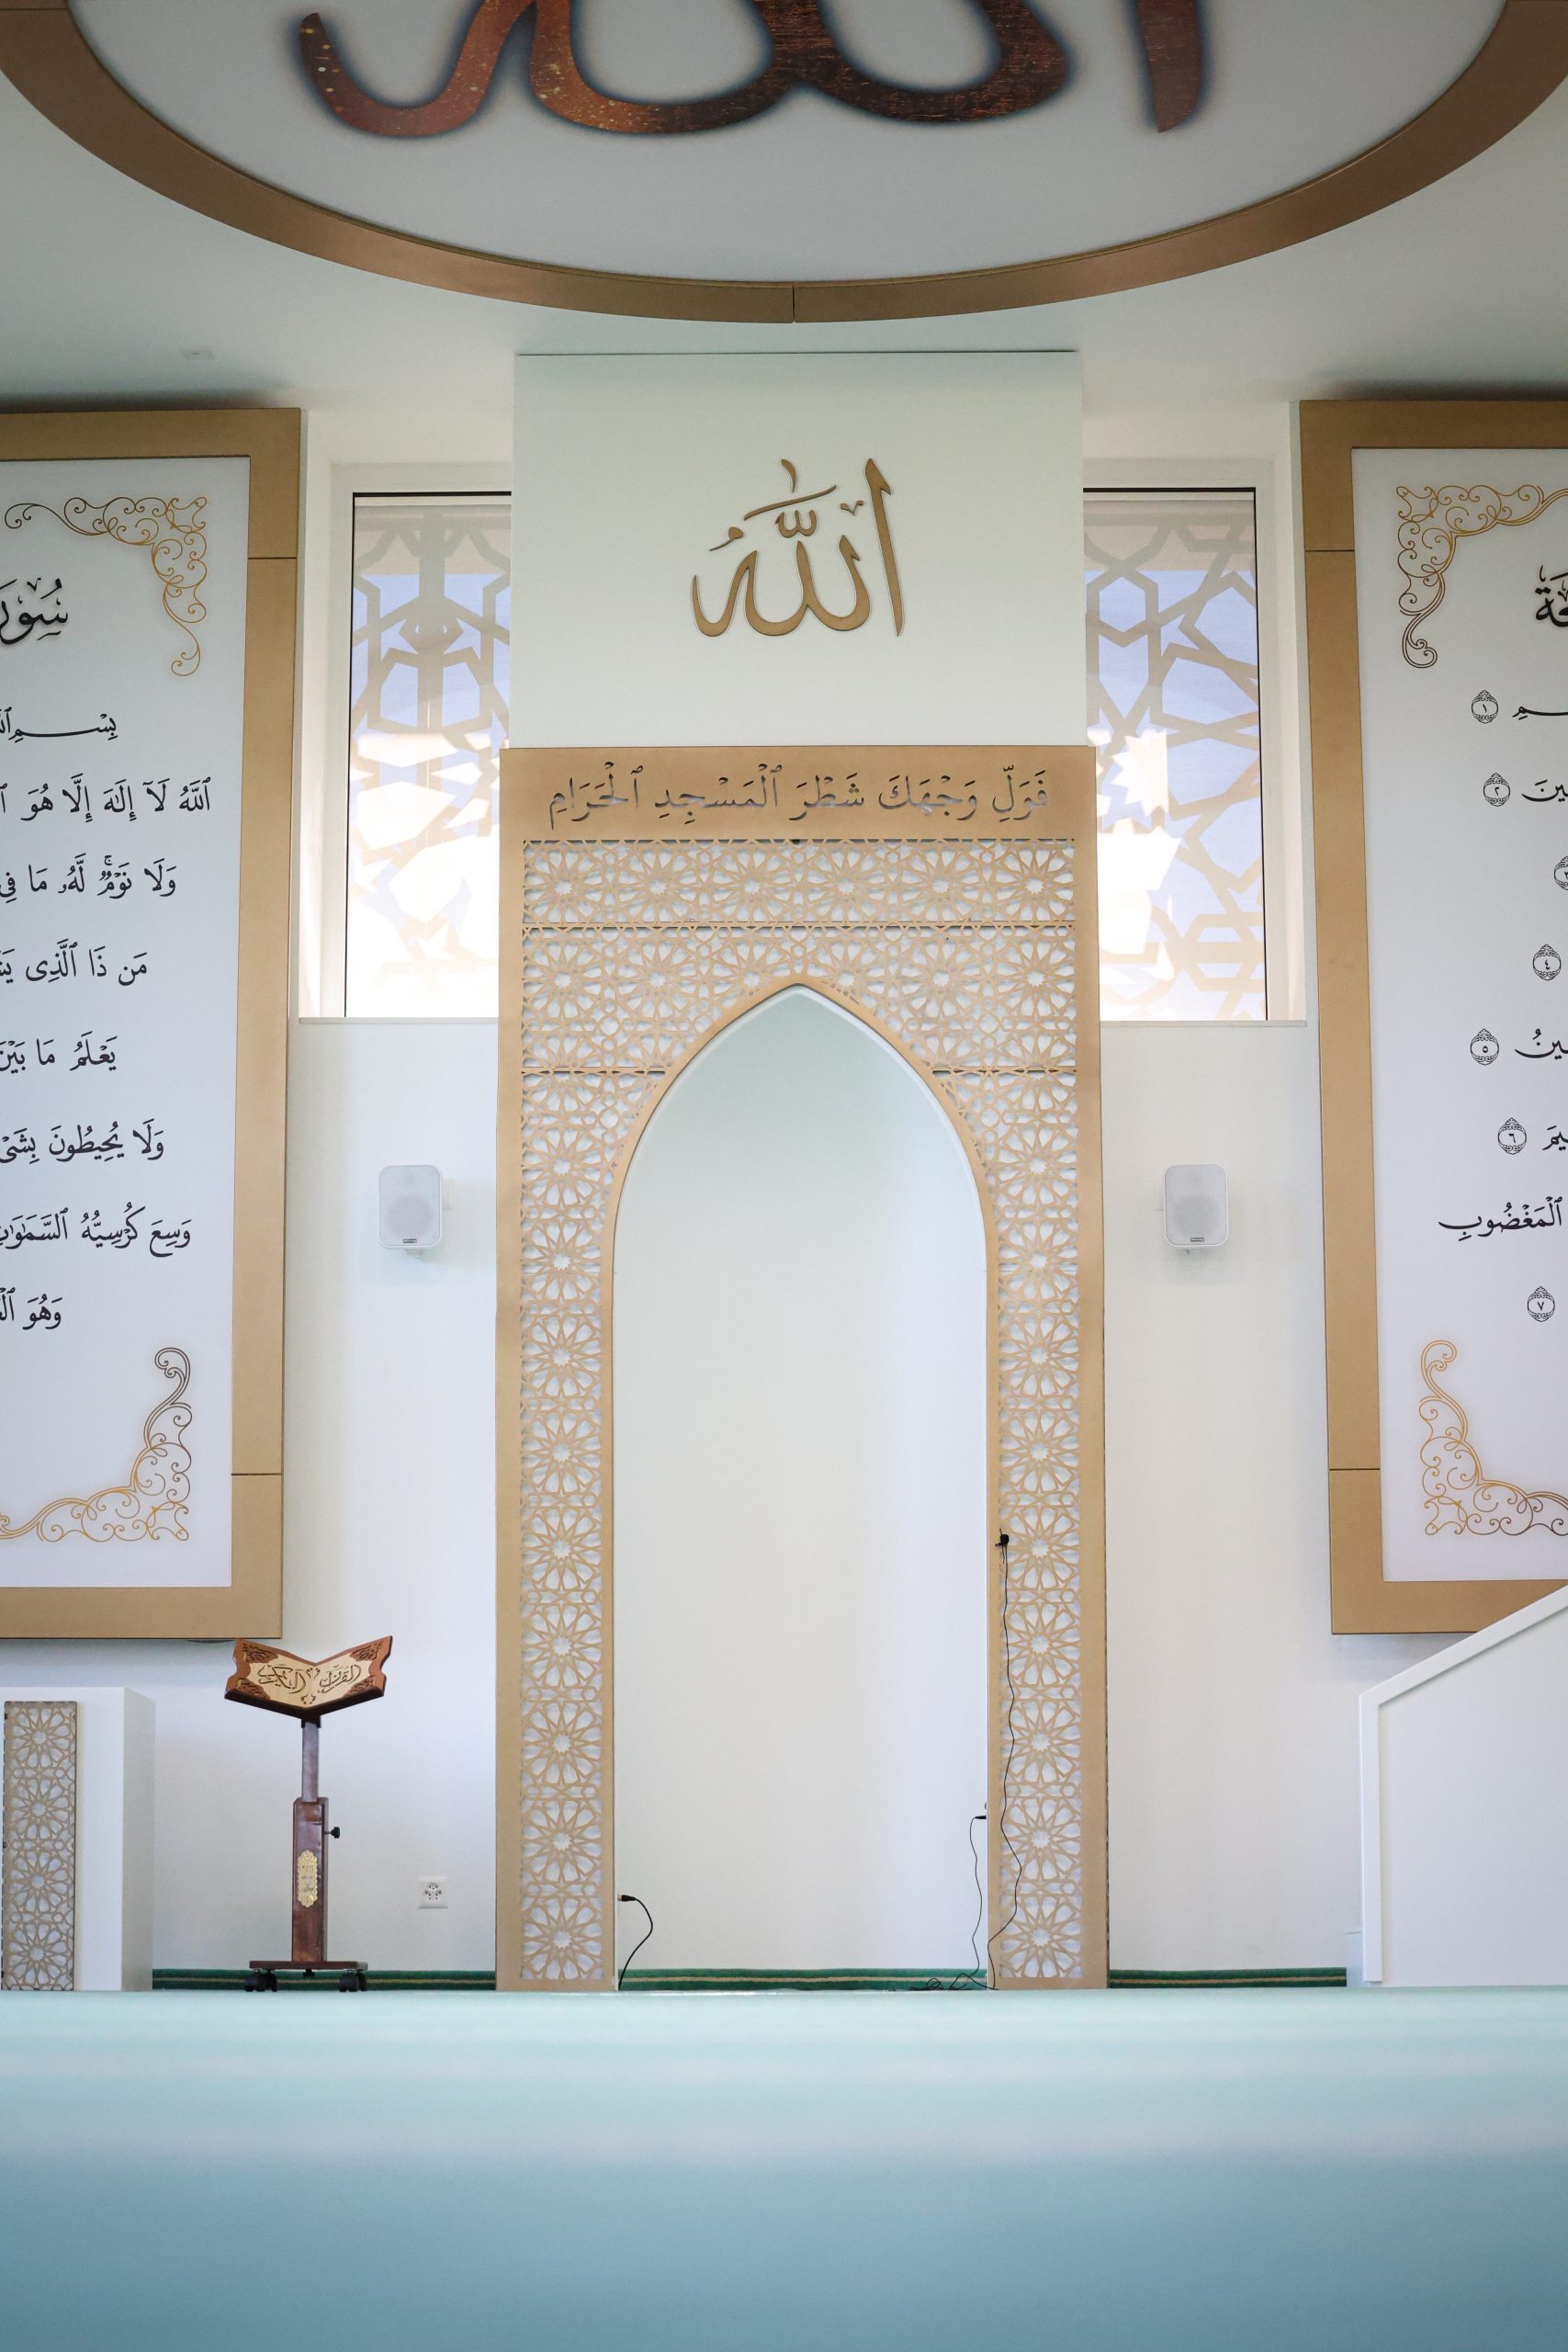 الله
اللّٰهُ
فَوَلِّ وَجْهَكَ شَطْرَ ٱلْمَسْجِدِ ٱلْحَرَامِ
ٱللَّهُ لَآ إِلَٰهَ إِلَّا هُوَ
وَلَا نَوْمٌۚ لَّهُۥ مَا فِي
مَن ذَا ٱلَّذِى
يَعْلَمُ مَا بَيْنَ
وَلَا يُحِيطُونَ بِشَىْ
وَسِعَ كُرْسِيُّهُ ٱلسَّمَٰوَٰتِ
وَهُوَ
١
٢
٤
٥
٦
ٱلْمَغْضُوبِ
٧
القرآن الكريم